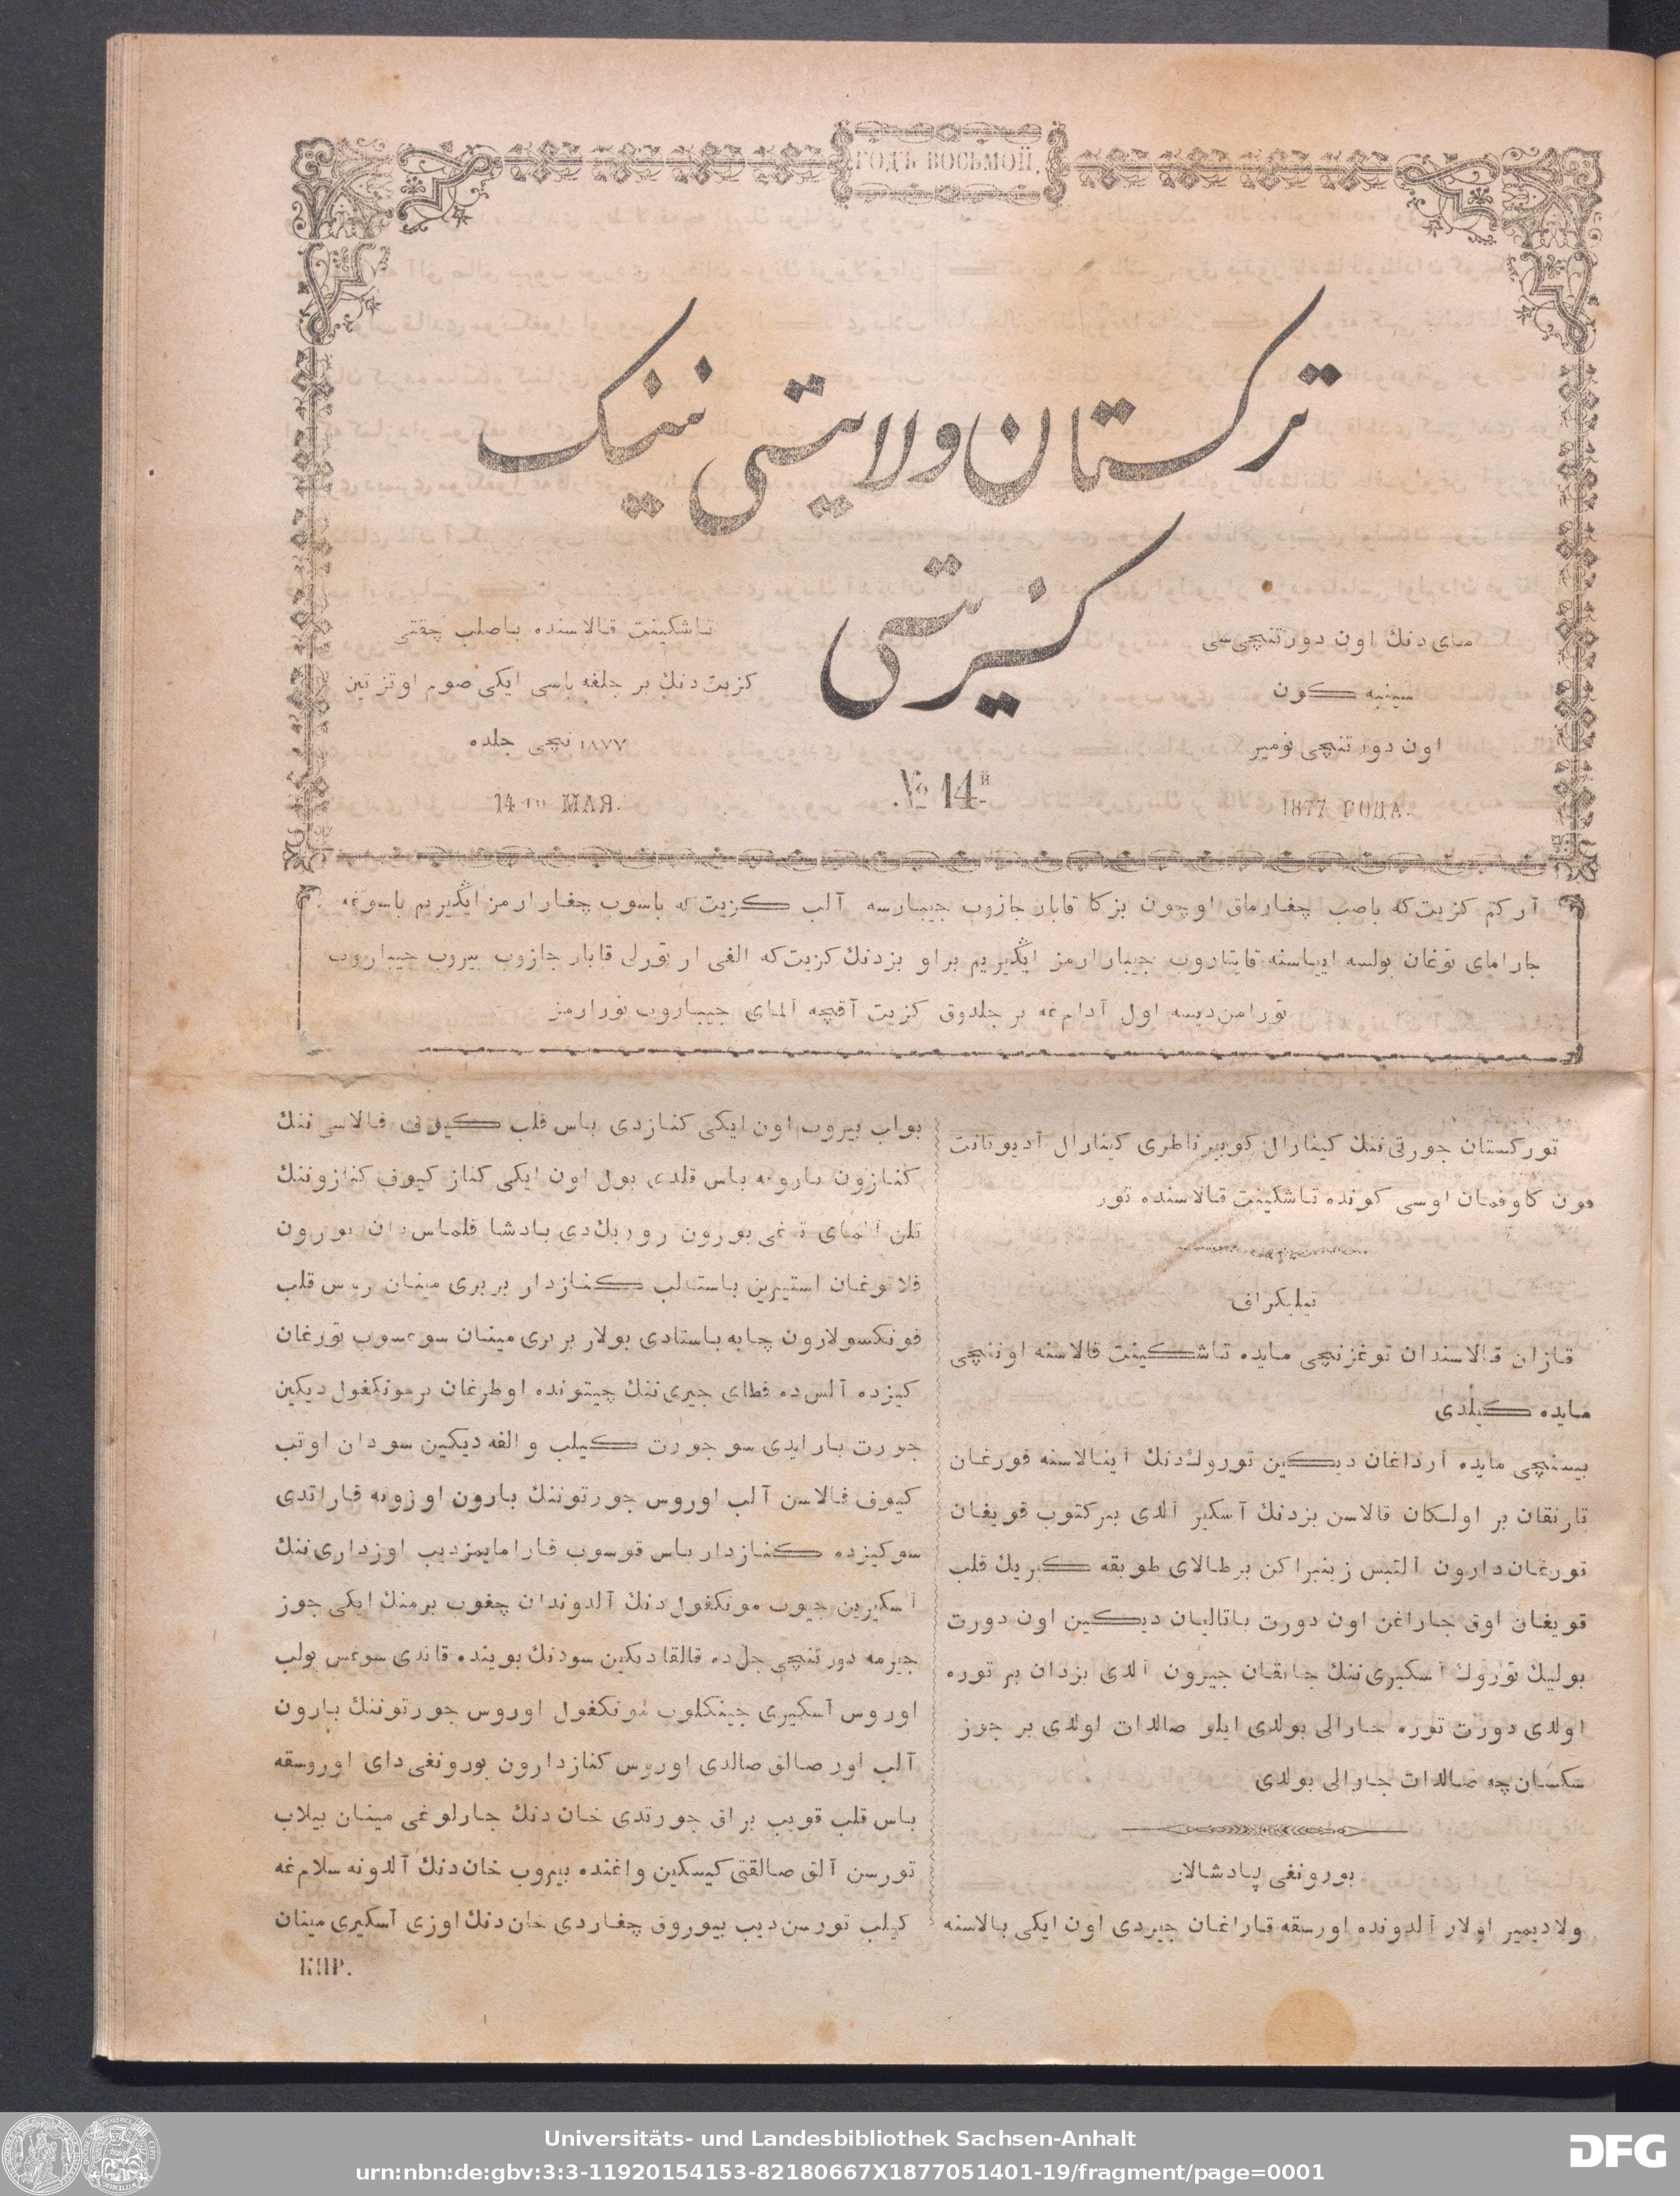 ГОДЪ ВОСЬМОЙ.
ترکستان ولایتی نینک
کزیتی
مای دنك اون دورتنچی‌سی
سینبه کون
اون دورتنچی نومیر
1877 ГОДА.
№ 14й
تاشکینت قالاسنده باصلب چقتی
کزیت دنك بر جلغه باسی ایکی صوم اوتز تین
۱۸۷۷ نچی جلده
14го МАЯ.
آر کتم کزیت‌که باصب چغارماق اوچون بزکا قابار جازوب جیبارسه آلب کزیت‌که باسوب چغارارمز ایڭیریم باسوغه
جارامای توغان بولسه اییاسنه قایتاروب جیبارارمز ایڭیریم براو بزدنك کزیت‌که الغی ار تورلی قابار جازوب بیروب جیباروب
تورامن‌دیسه اول آدام‌غه بر جلدوق کزیت آقچه المای جیباروب تورارمز
تورکستان جورتی‌ننك کینارال کوبیرناطری کینارال آدیوتانت
فون کاوفمان اوسی کونده تاشکینت قالاسنده تور
تیلیکراف
قازان قالاسندان توغزنچی مایده تاشکینت قالاسنه اوننچی
مایده کیلدی
بیسنچی مایده آرداغان دیکین تورولك‌دنك آینالاسنه قورغان
تارتقان بر اولکان قالاسن بزدنك آسکیر آلدی بیرکتوب قویغان
تورغان‌دارون آلتمس زینبراکن بر طالای طوبقه کیریك قلب
قویغان اوق جاراغن اون دورت باتالیان دیکین اون دورت
بولیك تورولك آسکیری‌ننك جانقان جیرون آلدی بزدان بر توره
اولدی دورت توره جارالی بولدی ایلو صالدات اولدی بر جوز
سکسان‌چه صالدات جارالی بولدی
بورونغی پادشالار
ولادیمیر اولار آلدونده اورسقه قاراغان جیردی اون ایکی بالاسنه
بواب بیروب اون ایکی کنازدی باس قلب کیوف قالاسی‌ننك
کنازون بارونه باس قلدی بول اون ایکی کناز کیوف کنازوننك
تلن آلمای تغی بورون روریك‌دی بادشا قلماس‌دان بورون
قلاتوغان استیرین باستالب کنازدار بربری مینان روس قلب
قونکسولارون چابه باستادی بولار بربری مینان سوغسوب تورغان
کیزده آلس‌ده قطای جیری‌ننك چیتونده اوطرغان برمونکغول دیکین
جورت بارایدی سو جورت کیلب والفه دیکین سودان اوتب
کیوف قالاسن آلب اوروس جورتوننك بارون اوزونه قاراتدی
سوکیزده کنازدار باس قوسوب قارامایمزدیب اوزداری‌ننك
آسکیرین جیوب مونکغول‌دنك آلدوندان چغوب برمنك ایکی جوز
جیرمه دورتنچی جل‌ده قالقا دیکین سودنك بوینده قاتدی سوغس بولب
اوروس آسکیری جینکلوب مونکغول اوروس جورتوننك بارون
آلب اور صالق صالدی اوروس کنازدارون بورونغی‌دای اوروسقه
باس قلب قویب براق جورتدی خان دنك جارلوغی مینان بیلاب
تورسن آلق صالقتی کیسکین واغنده بیروب خان‌دنك آلدونه سلام‌غه
کیلب تورسن دیب بیوروق چغاردی خان‌دنك اوزی آسکیری مینان
КИР.
Universitäts- und Landesbibliothek Sachsen-Anhalt
urn:nbn:de:gbv:3:3-11920154153-82180667X1877051401-19/fragment/page=0001
DFG